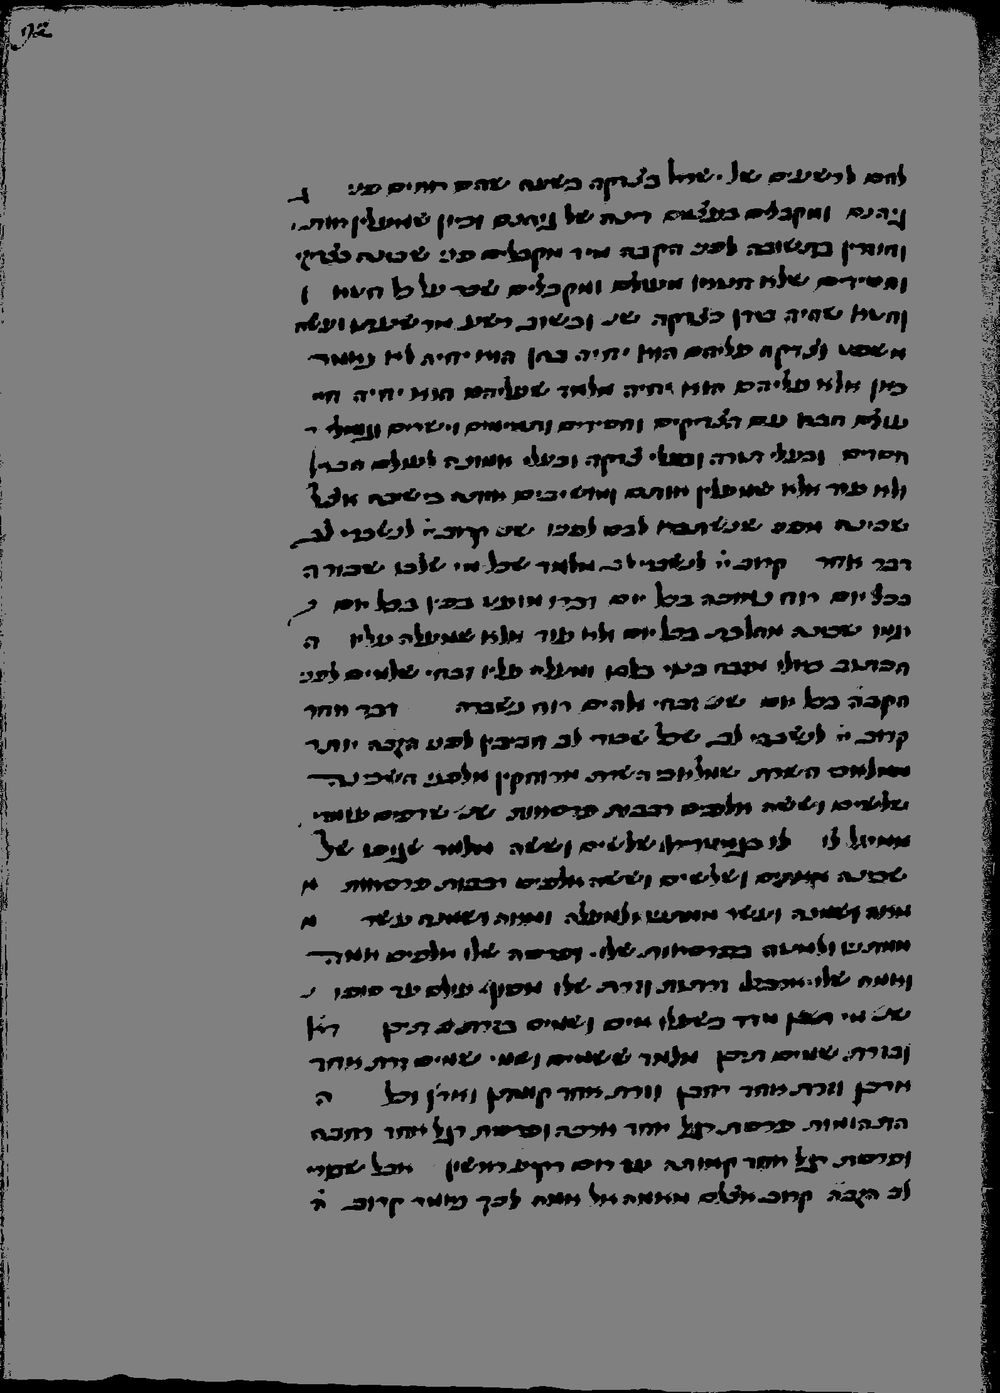 להם לרשעים של ישראל בצדקה בשעה שהם רואים פני ג
גיהנם ומקבלים בעצמם דינה של גיהנם וכיון שמעלין אותו
וחוזרין בתשובה לפני הקבה מיד מקבלים פני שכינה כצדיקי
וחסידים שלא חטאו מעולם ומקבלים שכר על כל חטא ו
וחטא שהיה בידן כצדקה שנ ובשוב רשע מרשעתו ועשה
משפט וצדקה עליהם הוא יחיה בהן הוא יחיה לא נאמר
כאן אלא עליהם הוא יחיה מלמד שעליהם הוא יחיה חיי
עולם הבא עם הצדיקים וחסידים ותמימים וישרים וגומלי
חסדים ובעלי תורה ובעלי צדקה ובעלי אמונה לעולם הבא
ולא עוד אלא שמעלין אותם ומושיבים אותם בישיבה אצל
שכינה מפני שנשתברו לבם לפניו שנ קרוב יי לנשברי לב
דבר אחר קרוב יי לנשברי לב מלמד שכל מי שלבו שבורה
בכל יום רוח נמוכה בכל יום ודברו מועט בפיו בכל יום
ועמו שכינה מהלכת בכל יום ולא עוד אלא שמעלה עליו ה
הכתוב כאלו מזבח בנוי בלבו ומעלה עליו זבחי שלמים לפני
הקבה בכל יום שנ זבחי אלהים רוח נשברה דבר אחר
קרוב יי לנשברי לב שכל שבורי לב חביבין לפני הקבה יותר
ממלאכי השרת שמלאכי השרת מרוחקין מלפני השכינה
שלשים וששה אלפים רבבות פרסאות שנ שרפים עומדי
ממעל לו לו בגימטריא שלשים וששה מלמד שגופו של
שכינה מאתים ושלשים וששה אלפים רבבות פרסאות מ
מאה ושמונה ועשר ממתניו ולמעלה ומאה ושמונה עשר מ
ממתניו ולמטה בפרסאות שלו ופרסה שלו אלפים אמה
ואמה שלו ארבעה זרתות וזרת שלו מסוף עולם עד סופו
שנ מי מדד בשעלו מים ושמים בזרת תיכן דא
ובזרת שמים תיכן מלמד ששמים ושמי שמים זרת אחד
ארכן וזרת אחד רחבן וזרת אחד קומתן וארץ וכל ה
התהומות פרסת רגל אחד ארכה ופרסת רגל אחד רחבה
ופרסת רגל אחד קומתה עד רום רקיע ראשון אבל שבורי
לב הקבה קרוב אצלם מאמה אל אמה לכך נאמר קרוב יי